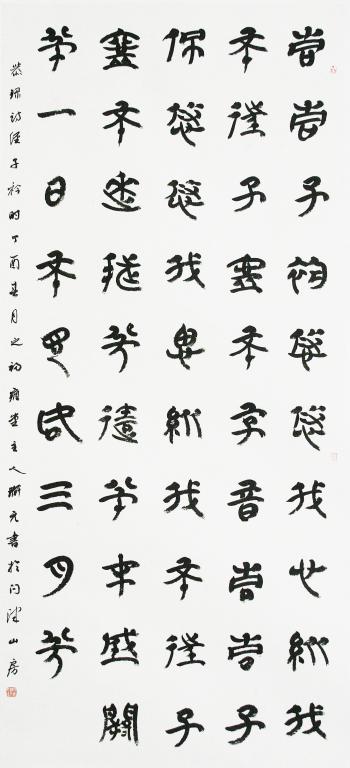 青青子衿悠悠我心縱我
不往子寧不嗣音青青子
佩悠悠我思縱我不往子
寧不來挑兮達兮在城闕
兮一日不見如三月兮
恭録詩經子衿時丁酉春月之初堂主人元書於問津山房